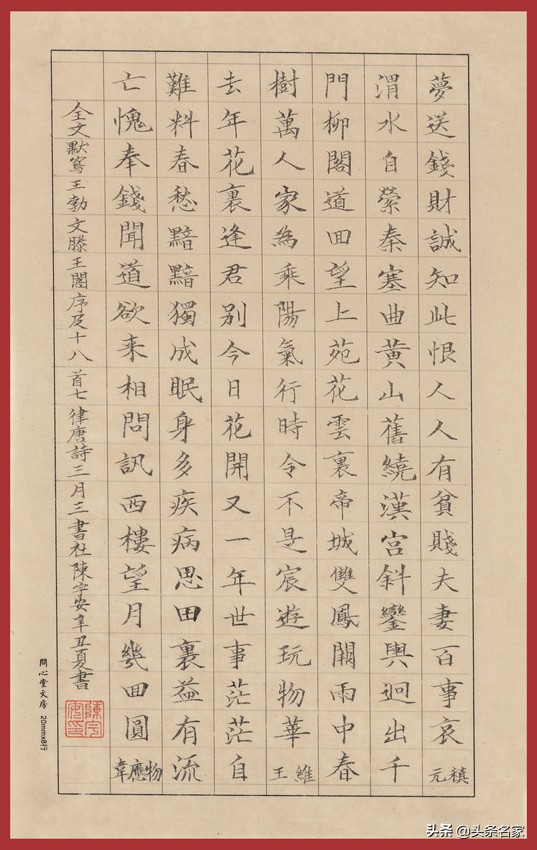 夢送錢財誠知此恨人人有貧賤夫妻百事哀 元稹
渭水自縈秦塞曲黃山舊繞漢宮斜鑾輿迥出千
門柳閣道回望上苑花雲裏帝城雙鳳闕雨中春
樹萬人家為乘陽氣行時令不是宸遊玩物華 王維
去年花裏逢君別今日花開又一年世事茫茫自
難料春愁黯黯獨成眠身多疾病思田裏益有流
亡愧奉錢聞道欲来相問訊西樓望月幾回圓 韋應物
全文默寫王勃文滕王閣序及十八首七律唐詩三月三書社陳宇安辛丑夏書
問心堂文房 20mmx8行
头条 @头条名家